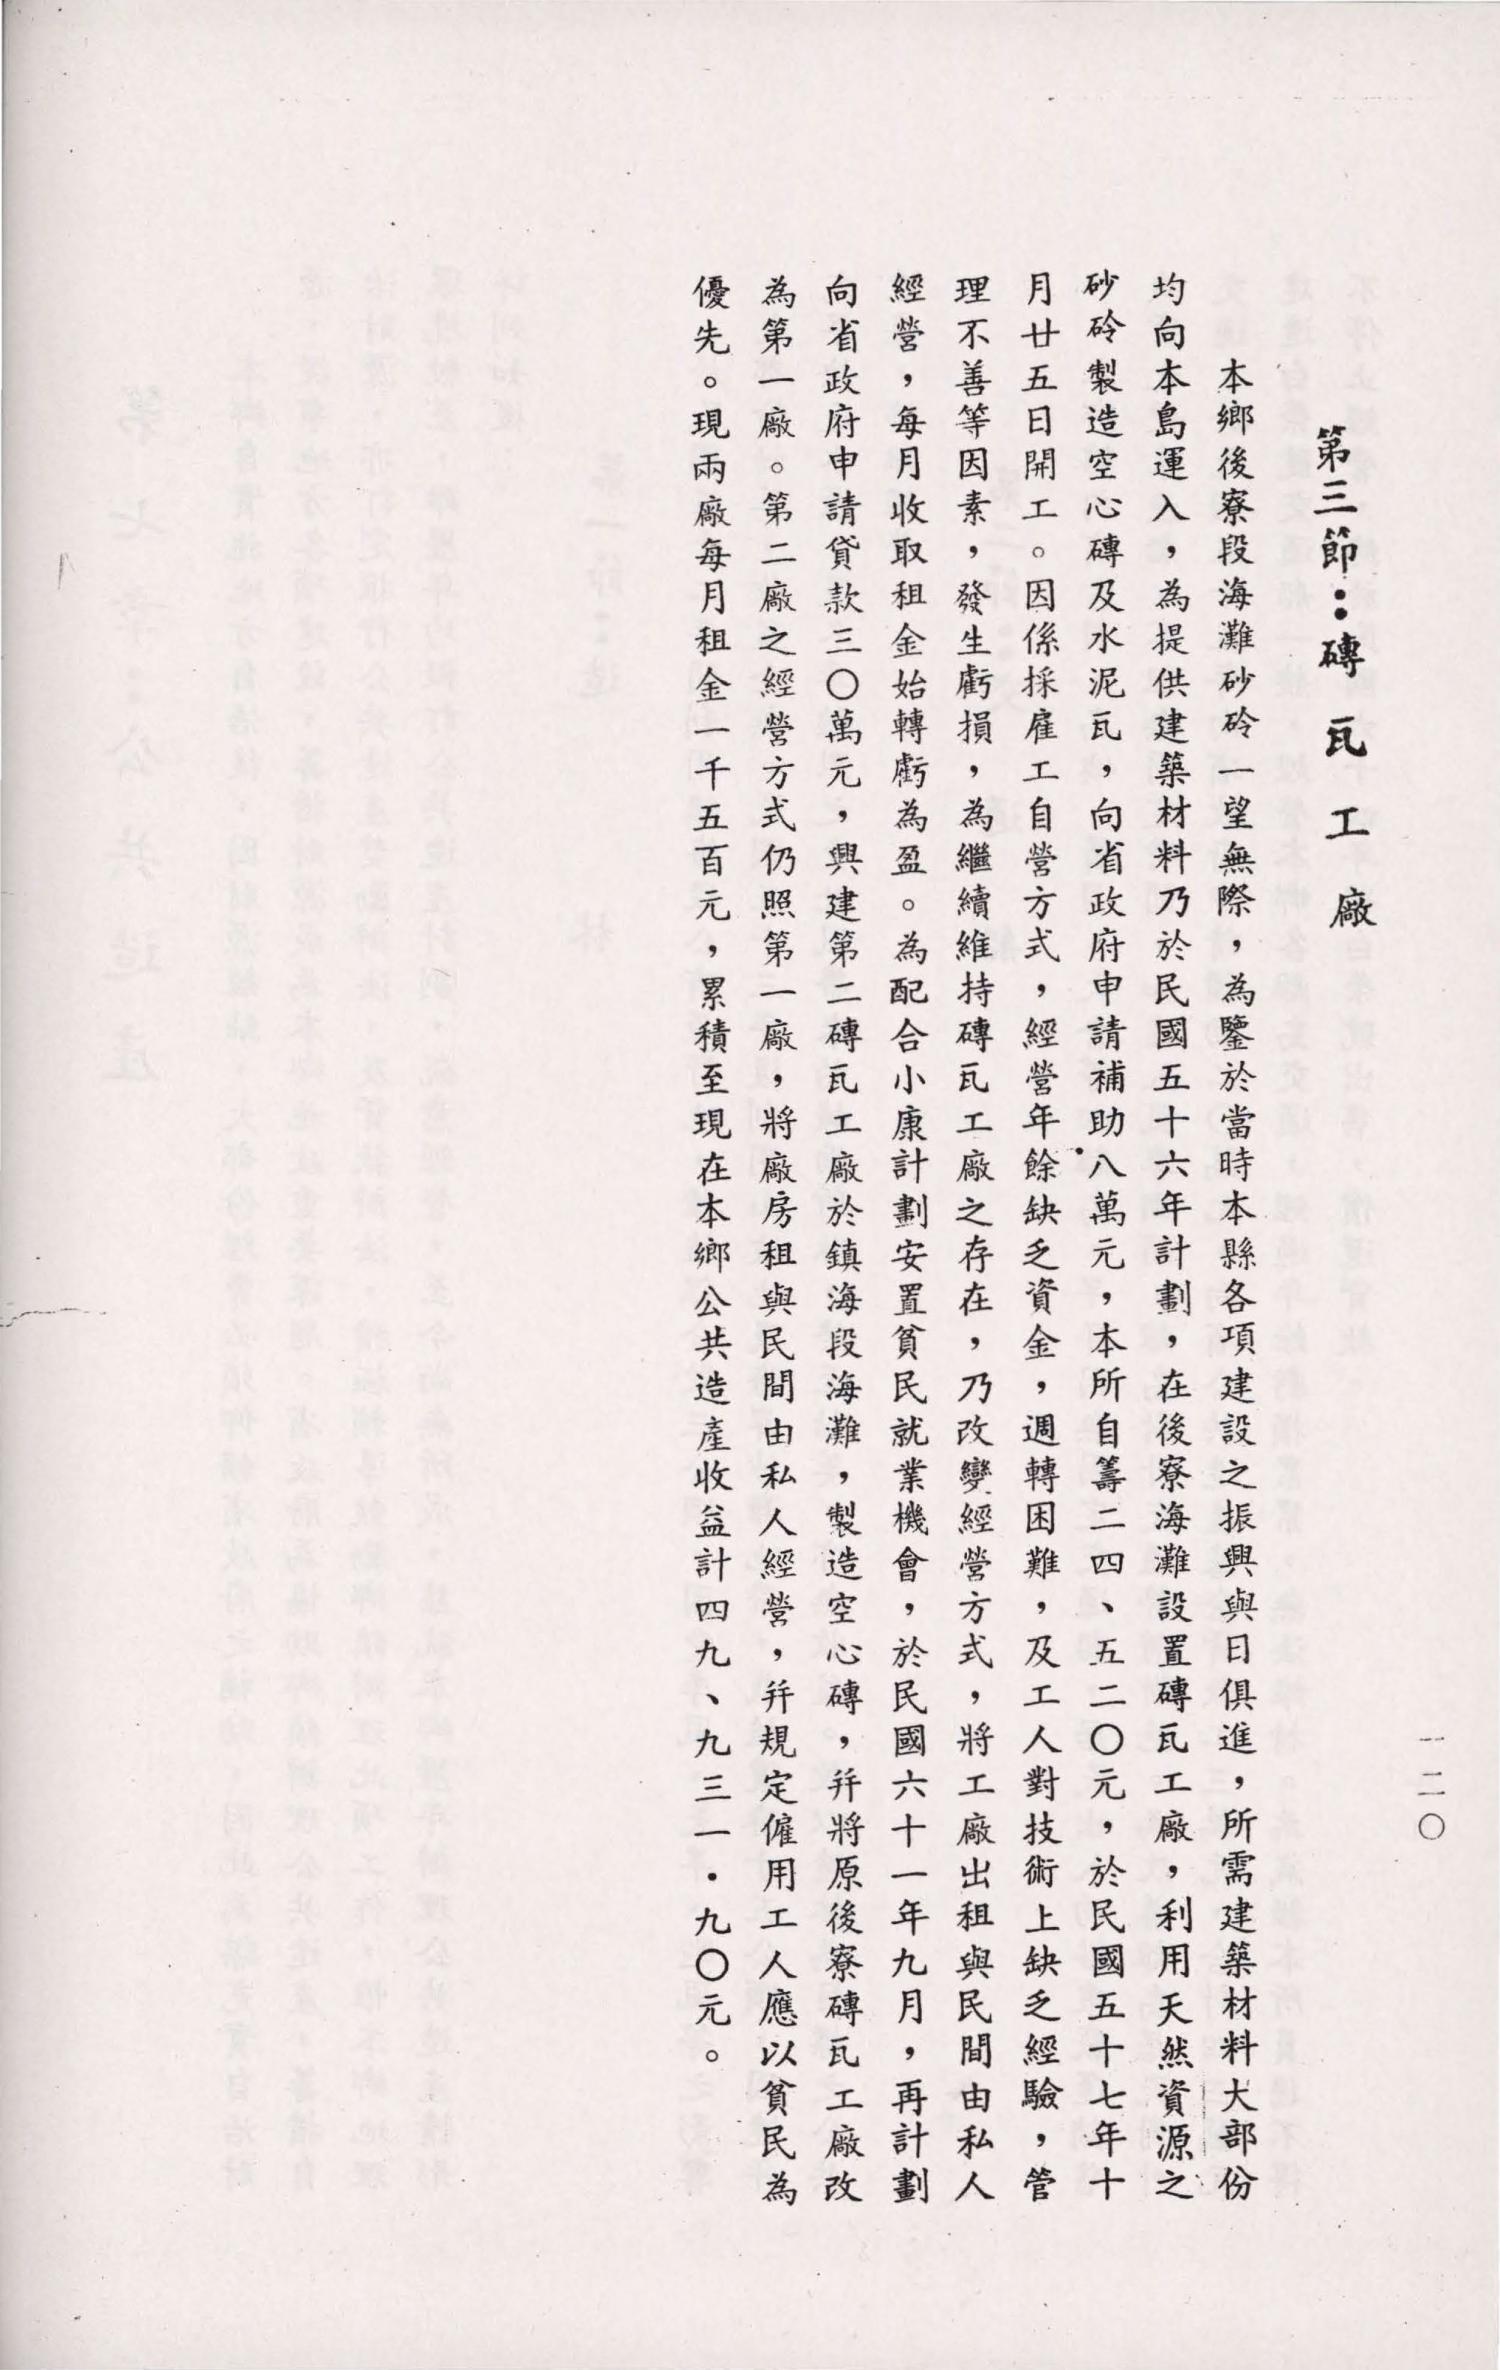 第三節：磚瓦工廠
本鄉後寮段海灘砂砱一望無際，為鑒於當時本縣各項建設之振興與日俱進，所需建築材料大部份
均向本島運入，為提供建築材料乃於民國五十六年計劃，在後寮海灘設置磚瓦工廠，利用天然資源之
砂砱製造空心磚及水泥瓦，向省政府申請補助八萬元，本所自籌二四、五二〇元，於民國五十七年十
月廿五日開工。因係採雇工自營方式，經營年餘缺乏資金，週轉困難，及工人對技術上缺乏經驗，管
理不善等因素，發生虧損，為繼續維持磚瓦工廠之存在，乃改變經營方式，將工廠出租與民間由私人
經營，每月收取租金始轉虧為盈。為配合小康計劃安置貧民就業機會，於民國六十一年九月，再計劃
向省政府申請貸款三〇萬元，興建第二磚瓦工廠於鎮海段海灘，製造空心磚，并將原後寮磚瓦工廠改
為第一廠。第二廠之經營方式仍照第一廠，將廠房租與民間由私人經營，并規定僱用工人應以貧民為
優先。現兩廠每月租金一千五百元，累積至現在本鄉公共造產收益計四九、九三一．九〇元。
一二〇